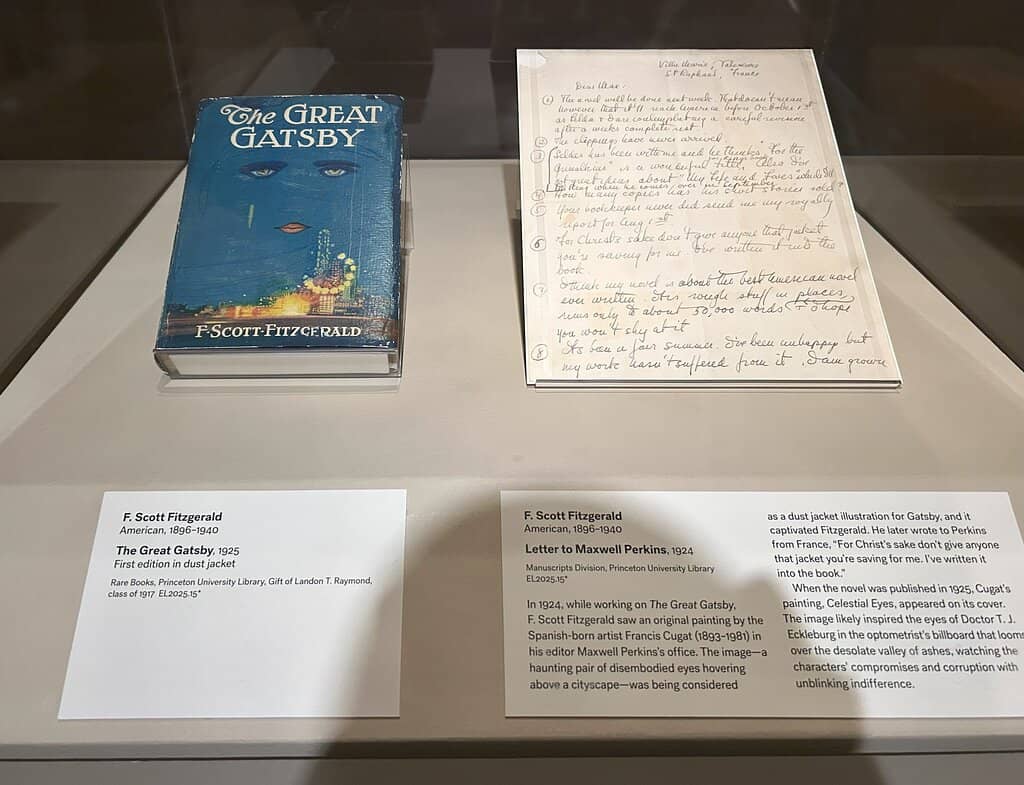 The GREAT
GATSBY
F·SCOTT·FITZGERALD
Villa Marie, Valescure
St Raphael, France
Dear Max:
1 The novel will be done next week. That doesn't mean
however that it'll reach America before October 1st
as Zelda + I are contemplating a careful revision
after a weeks complete rest.
2 The clippings have never arrived.
3 Seldes has been with me and he thinks "For the
Grimalkins" is a wonderful title, Also I've
got great ideas about "My Life and Loves" which I'll
tell Ring when he comes over in September.
4 How many copies has his short stories sold?
5 Your bookkeeper never did send me my royalty
report for Aug 1st.
6 For Christ's sake don't give anyone that jacket
you're saving for me. I've written it into the
book.
7 I think my novel is about the best American novel
ever written. It is rough stuff in places,
runs only to about 50,000 words + I hope
you won't shy at it
8 Its been a fair summer. I've been unhappy but
my work hasn't suffered from it. I am grown
F. Scott Fitzgerald
American, 1896–1940
The Great Gatsby, 1925
First edition in dust jacket
Rare Books, Princeton University Library, Gift of Landon T. Raymond,
class of 1917 EL2025.15*
F. Scott Fitzgerald
American, 1896–1940
Letter to Maxwell Perkins, 1924
Manuscripts Division, Princeton University Library
EL2025.15*
In 1924, while working on The Great Gatsby,
F. Scott Fitzgerald saw an original painting by the
Spanish-born artist Francis Cugat (1893–1981) in
his editor Maxwell Perkins's office. The image—a
haunting pair of disembodied eyes hovering
above a cityscape—was being considered
as a dust jacket illustration for Gatsby, and it
captivated Fitzgerald. He later wrote to Perkins
from France, "For Christ's sake don't give anyone
that jacket you're saving for me. I've written it
into the book."
When the novel was published in 1925, Cugat's
painting, Celestial Eyes, appeared on its cover.
The image likely inspired the eyes of Doctor T. J.
Eckleburg in the optometrist's billboard that looms
over the desolate valley of ashes, watching the
characters' compromises and corruption with
unblinking indifference.